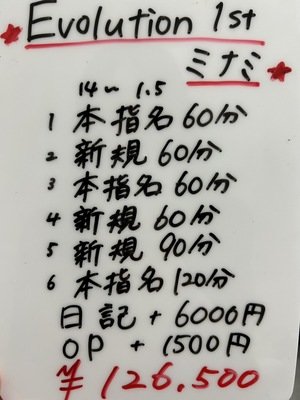 Evolution 1st
ミナミ
14〜 1.5
1 本指名 60分
2 新規 60分
3 本指名 60分
4 新規 60分
5 新規 90分
6 本指名 120分
日記 + 6000円
OP + 1500円
¥126,500